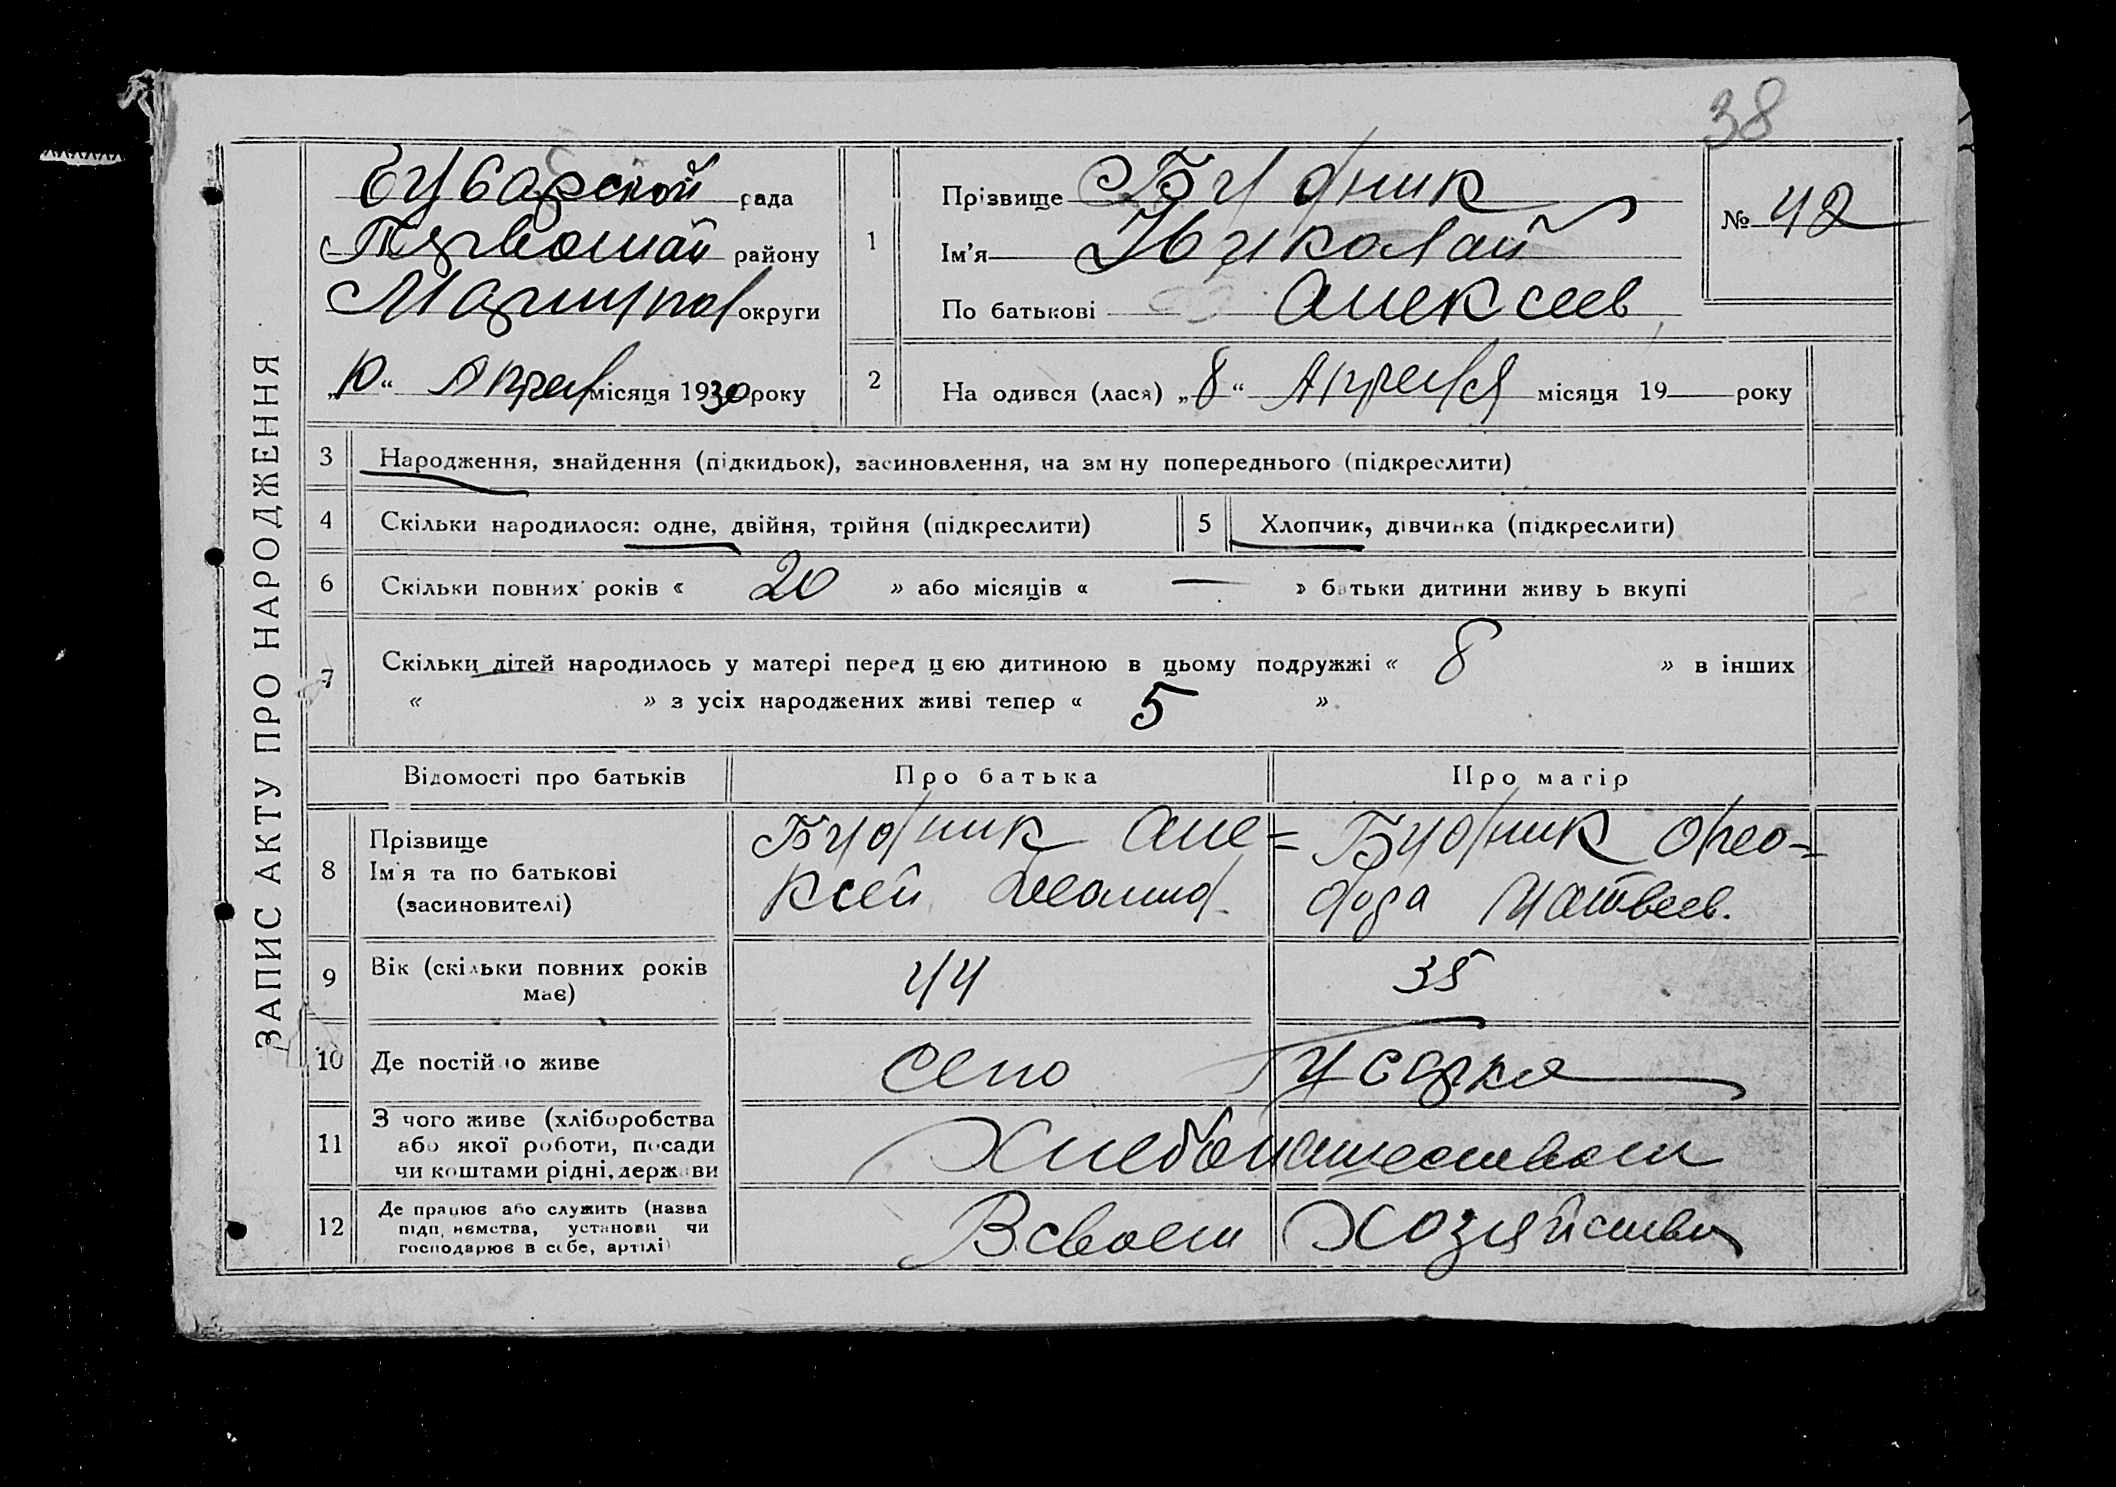 38
ЗАПИС АКТУ ПРО НАРОДЖЕННЯ
рада
Первомай району
Мариупол округи
„10“ Апрел місяця 1930 року
1
Прізвище Будник
Ім'я Николай
По батькові Алексеев
№ 42
2
На одився (лася) „8“ Апреля місяця 19 року
3 Народження, знайдення (підкидьок), засиновлення, на зм ну попереднього (підкреслити)
4 Скільки народилося: одне, двійня, трійня (підкреслити) 5 Хлопчик, дівчинка (підкреслити)
6 Скільки повних років « 20 » або місяців « — » батьки дитини живу ь вкупі
7 Скільки дітей народилось у матері перед цією дитиною в цьому подружжі « 8 » в інших
« » з усіх народжених живі тепер « 5 »
Відомості про батьків Про батька Про матір
8 Прізвище
Ім'я та по батькові
(засиновителі)
Будник Але=
ксей
Будник Фео=
дора Матвеев.
9 Вік (скільки повних років
має)
44 35
10 Де постійно живе село
11 З чого живе (хліборобства
або якої роботи, посади
чи коштами рідні, держави
Хлебопашеством
12 Де працює або служить (назва
підп, иємства, установи чи
господарює в себе, артілі)
В своем Хозяйстве